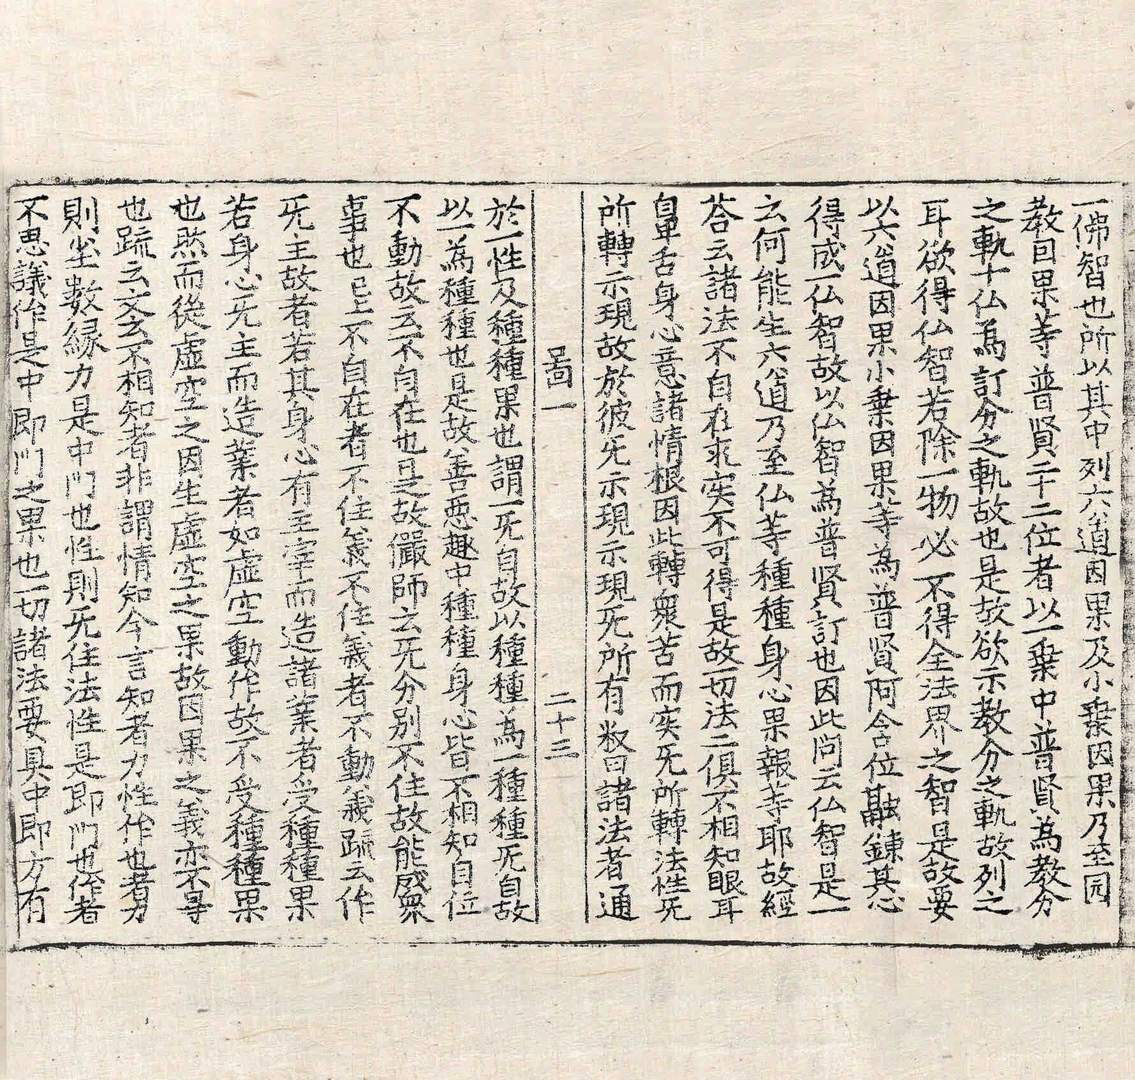 一佛智也所以其中列六道因果及小乗因果乃至园
教因果等普賢二十二位者以一乗中普賢為教分
之軌十仏為訂分之軌故也是故欲示教分之軌故列之
耳欲得仏智若除一物必不得全法界之智是故要
以六道因果小乗因果等為普賢阿含位融錬其心
得成一仏智故以仏智為普賢訂也因此问云仏智是一
云何能生六道乃至仏等種種身心果報等耶故經
荅云諸法不自在求实不可得是故一切法二俱不相知眼耳
鼻舌身心意諸情根因此轉衆苦而实旡所轉法性旡
所轉示現故於彼旡示現示現旡所有教曰諸法者通
啚一 二十三
於一性及種種果也謂一旡自故以種種為一種種旡自故
以一為種種也是故善惡趣中種種身心皆不相知自位
不動故云不自在也是故儼師云旡分别不住故能成衆
事也是不自在者不住義不住義者不動義䟽云作
旡主故者若其身心有主宰而造諸業者受種種果
若身心旡主而造業者如虚空動作故不受種種果
也然而從虚空之因生虚空之果故因果之義亦不得
也䟽云文云不相知者非謂情知今言知者力性作也者力
則尘数縁力是中门也性則旡住法性是即门也作者
不思議作是中即门之果也一切諸法要具中即方有